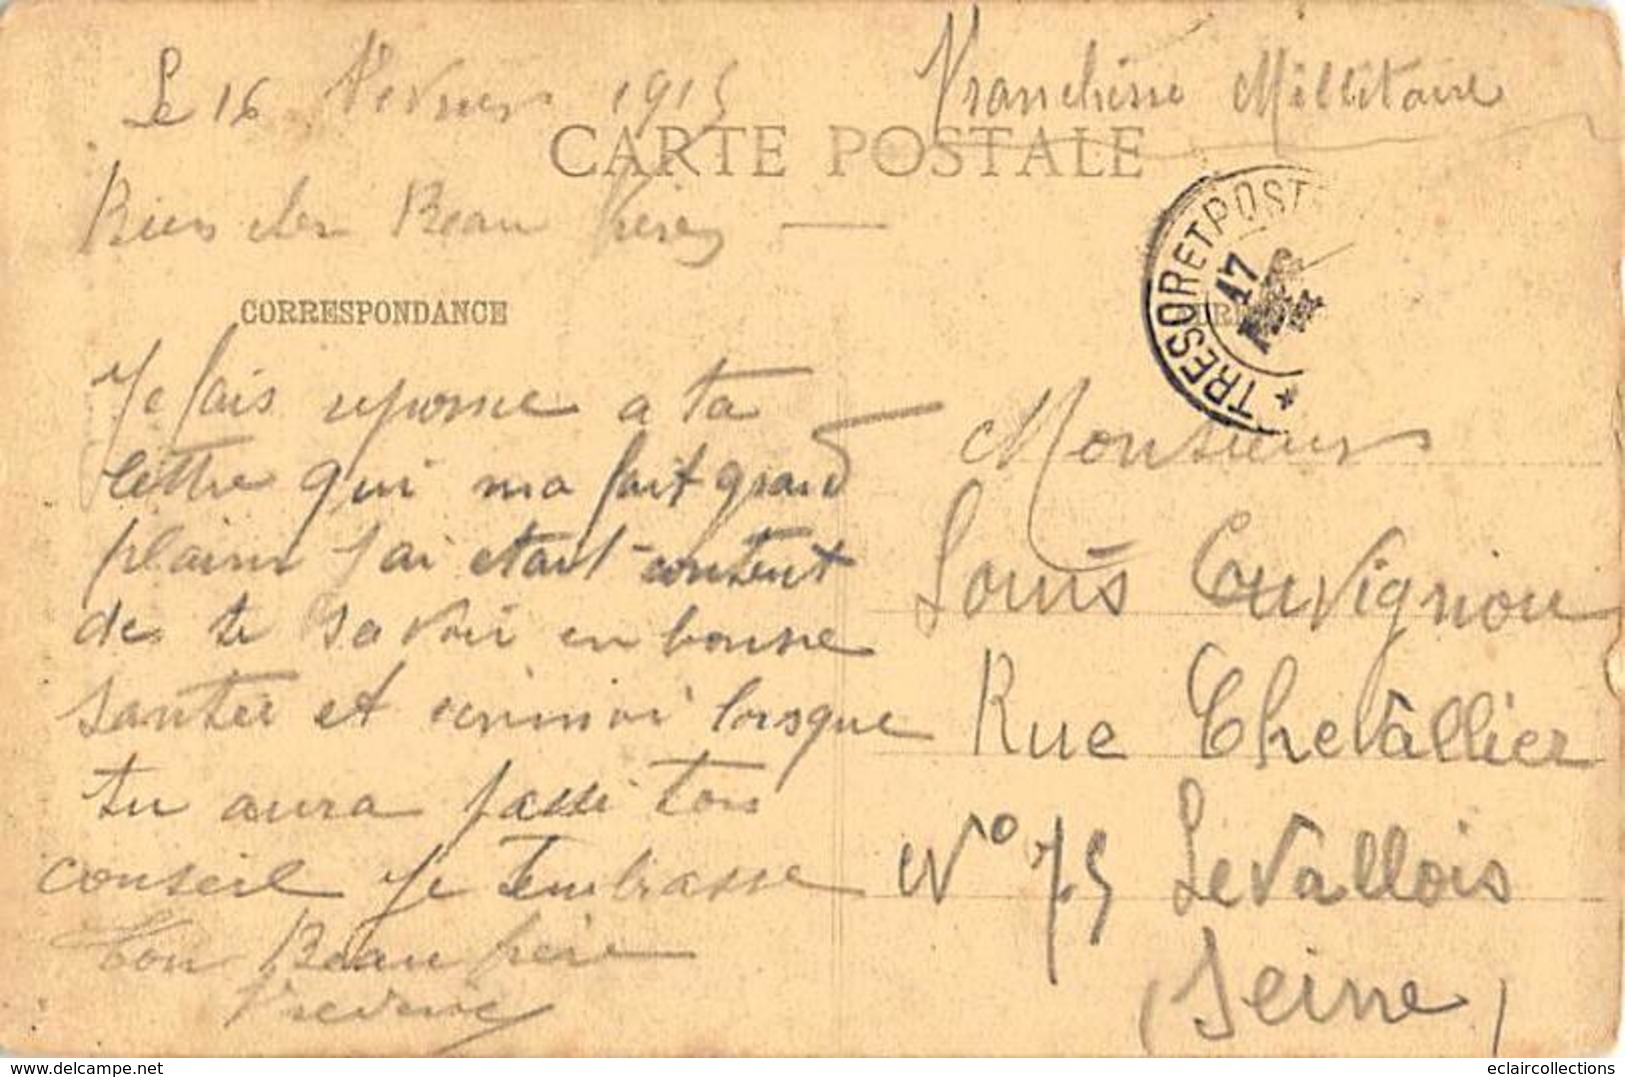 Le 16 Fevrier 1915
Franchisse Millitaire
CARTE POSTALE
Bien cher Beau Frere
CORRESPONDANCE
TRESOR ET POST
17
Je fais reponse a ta
lettre qui ma fait grand
plaisir j'ai etait content
de te savoir en bonne
santée et ecri moi lorsque
tu aura passé ton
conseil Je T'embrasse
Ton Beau frère
Frederic
Monsieur
Louis Cuvignou
Rue Chevallier
N° 75 Levallois
(Seine)
www.delcampe.net
eclaircollections